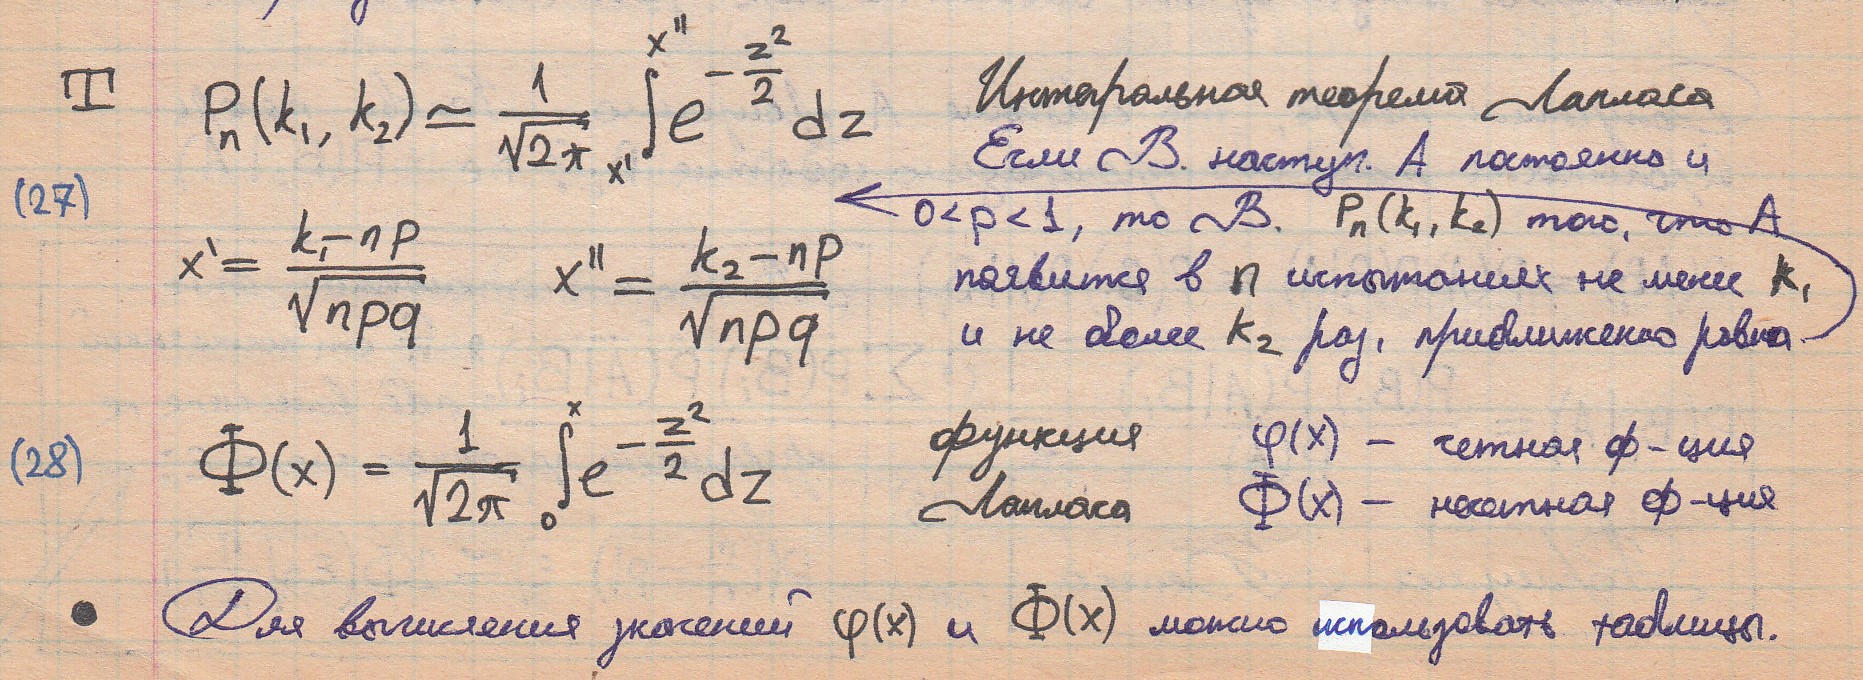 T Pₙ(k₁, k₂) ≃ 1/√2π ∫ₓ'ˣ'' e^(-z²/2) dz Интегральная теорема Лапласа
Если В. наступ. А постоянно и
(27) 0<p<1, то В. Pₙ(k₁, k₂) того, что А
x' = (k₁-np)/√npq x'' = (k₂-np)/√npq появится в n испытаниях не менее k₁
и не более k₂ раз, приближенно равна
(28) Φ(x) = 1/√2π ∫₀ˣ e^(-z²/2) dz функция Лапласа
φ(x) – четная ф-ция
Φ(x) – нечетная ф-ция
• Для вычисления значений φ(x) и Φ(x) можно использовать таблицы.